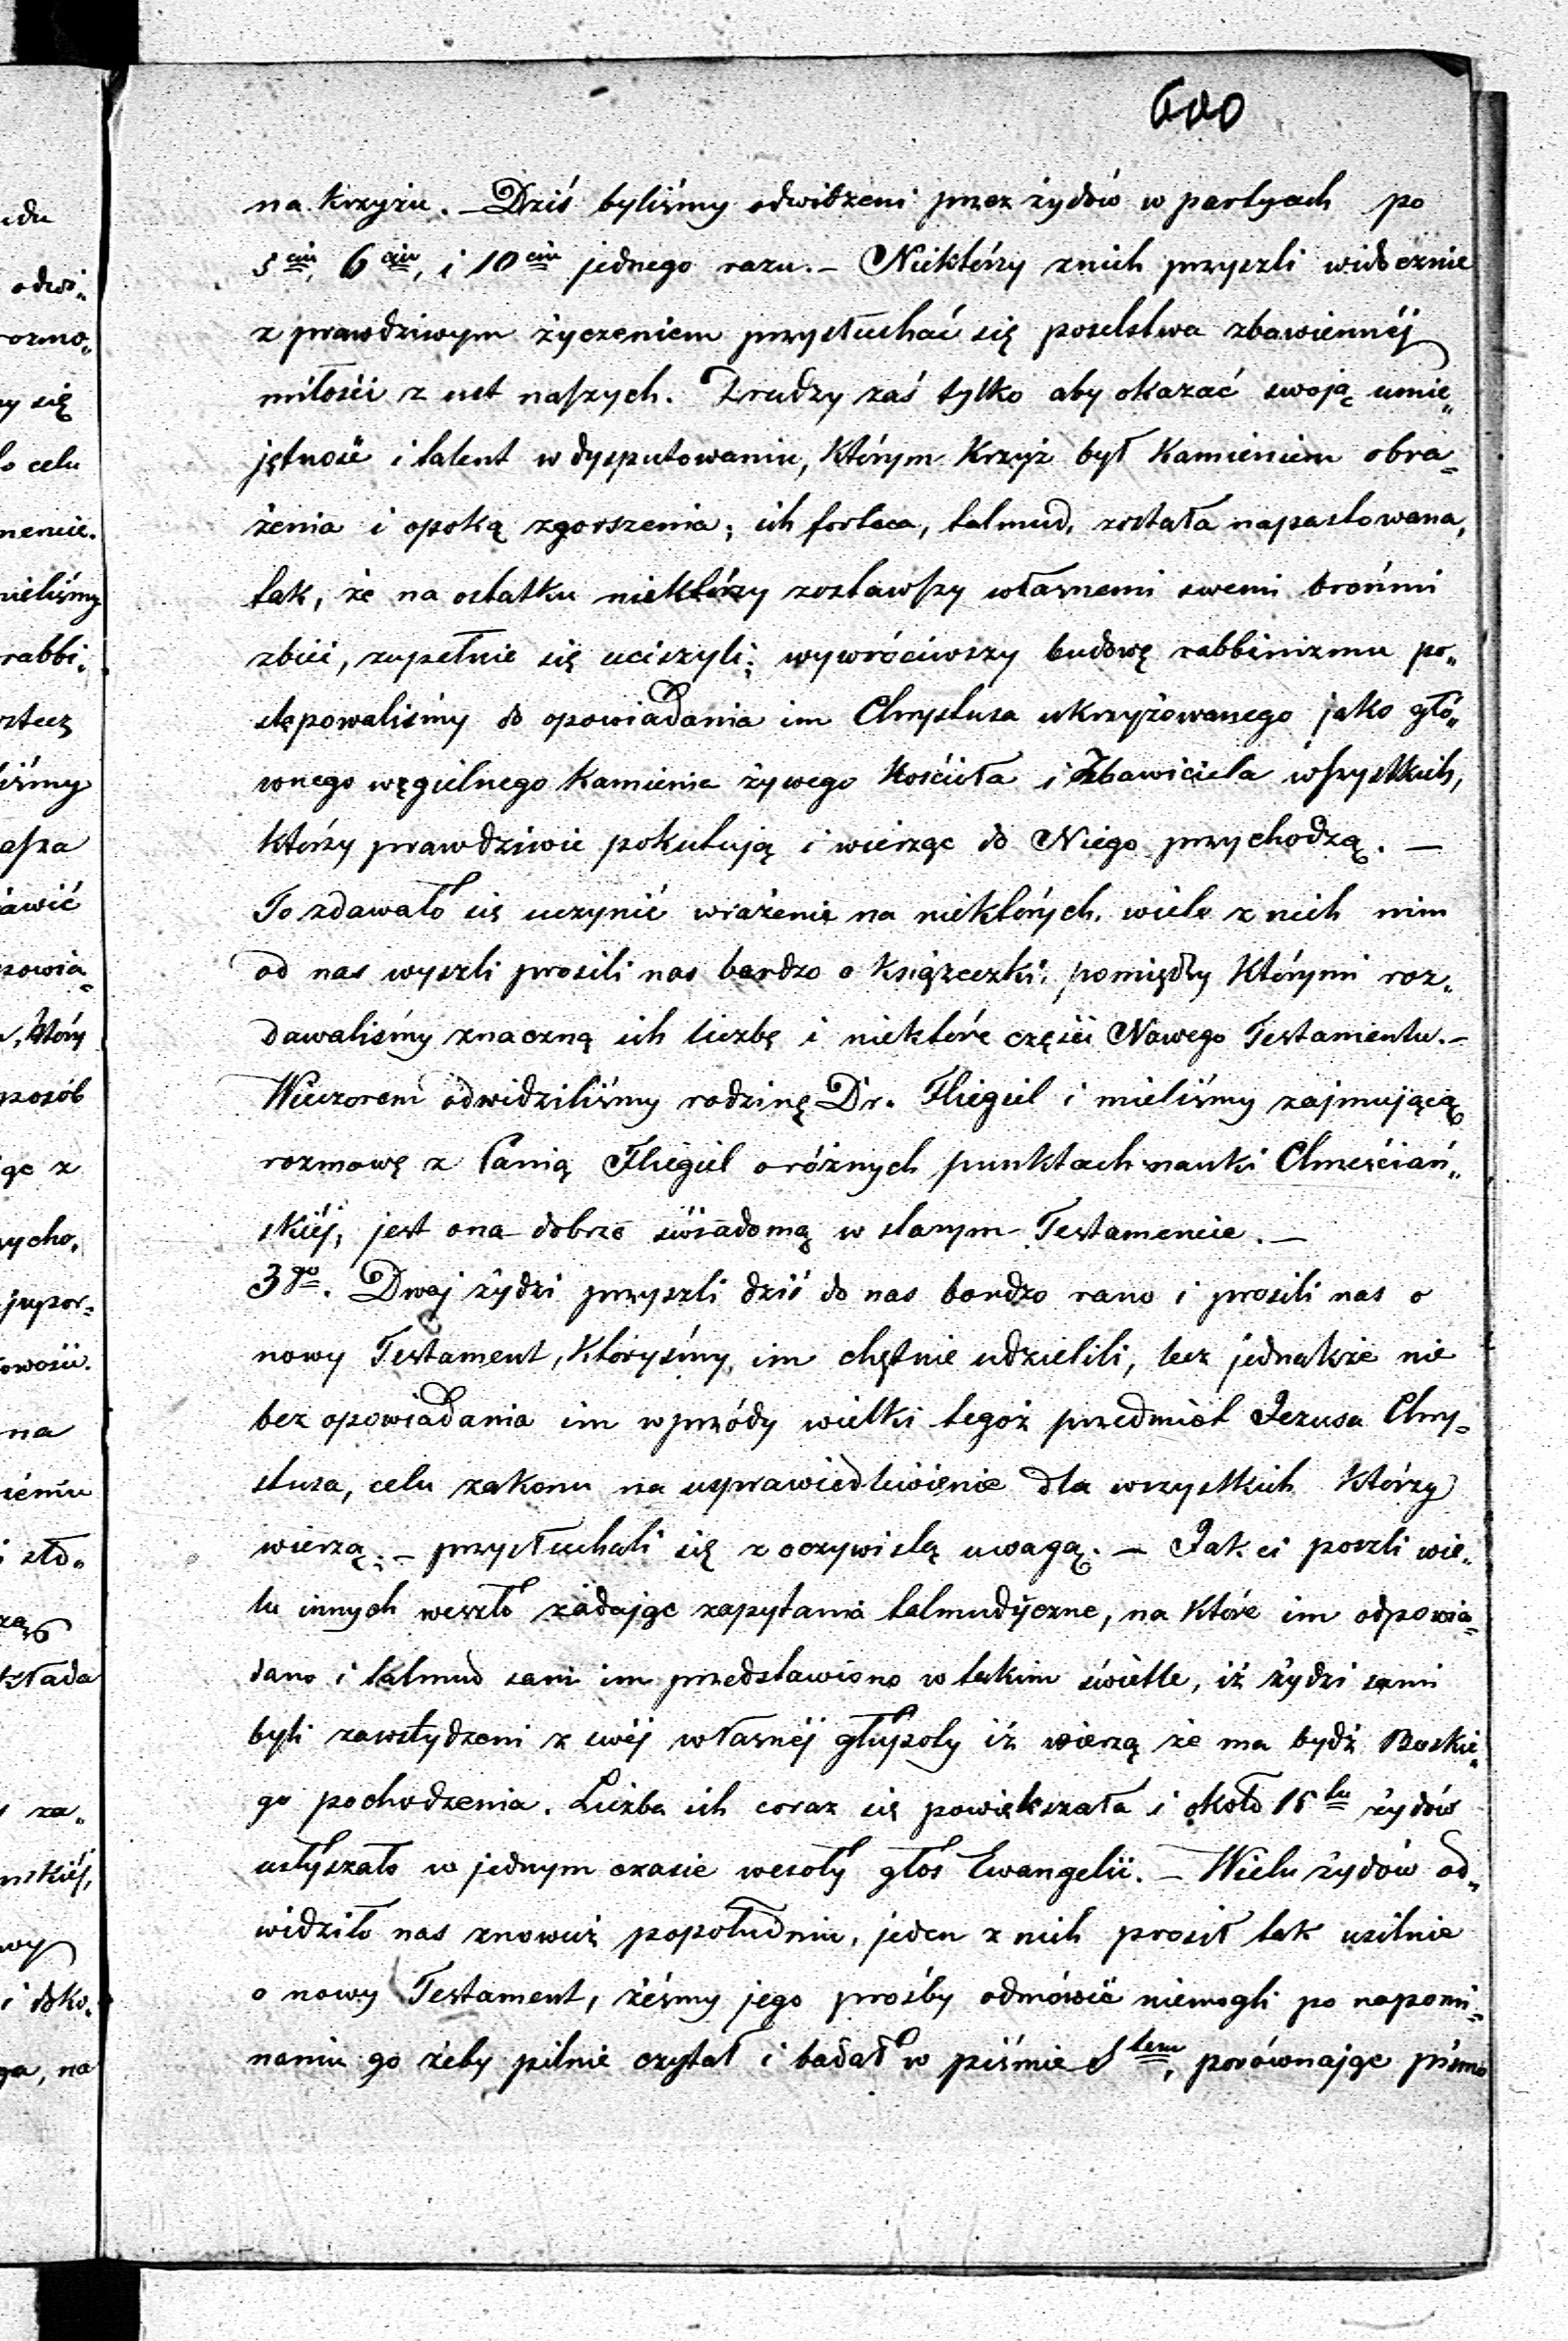 600
na krzyżu. — Dziś byliśmy odwidzeni przez żydów w partyach po
5ciu, 6ciu, i 10ciu jednego razu. — Niektórzy z nich przyszli widocznie
z prawdziwym życzeniem przysłuchać się poselstwa zbawiennéj
miłości z ust naszych. Drudzy zaś tylko aby okazać swoją umie„
jętność i talent w dysputowaniu, którym krzyż był kamieniem obra„
żenia i opoką zgorszenia; ich forteca, talmud, została napastowana,
tak, że na ostatku niektórzy zostawszy własnemi swemi brońmi
zbici, zupełnie się uciszyli; wywróciwszy budowę rabbinizmu po„
stępowaliśmy do opowiadania im Chrystusa ukrzyżowanego jako głó„
wnego węgielnego kamienia żywego kościoła i Zbawiciela wszystkich,
którzy prawdziwie pokutują i wierząc do Niego przychodzą. —
To zdawało się uczynić wrażenie na niektórych, wiele z nich nim
od nas wyszli prosili nas bardzo o książeczki, pomiędzy którymi roz„
dawaliśmy znaczną ich liczbę i niektóre części Nowego Testamentu. —
Wieczorem odwidziliśmy rodzinę Dr. Fliegiel i mieliśmy zajmującą
rozmowę z Panią Fliegiel o różnych punktach nauki Chrześciań„
skiéj, jest ona dobrze świadomą w starym Testamencie. —
3go. Dwaj żydzi przyszli dziś do nas bardzo rano i prosili nas o
nowy Testament, któryśmy im chętnie udzielili, lecz jednakże nie
bez opowiadania im wprzódy wielki tegoż przedmiot Jezusa Chry„
stusa, celu zakonu na usprawiedliwienie dla wszystkich którzy
wierzą; — przysłuchali się z oczywistą uwagą. — Jak ci poszli wie„
lu innych weszło żądając zapytania talmudyczne, na które im odpowia„
dano i talmud sam im przedstawiono w takim świetle, iż żydzi sami
byli zawstydzeni z swéj własnéj głupoty iż wierzą że ma bydź Boskie„
go pochodzenia. Liczba ich coraz się powiększała i około 15tu żydów
usłyszało w jednym czasie wesoły głos Ewangelii. — Wielu żydów od„
widziło nas znowuż popołudniu, jeden z nich prosił tak usilnie
o nowy Testament, żeśmy jego prośby odmówić niemogli po napomi„
naniu go żeby pilnie czytał i badał w piśmie Stem, porównając pismo